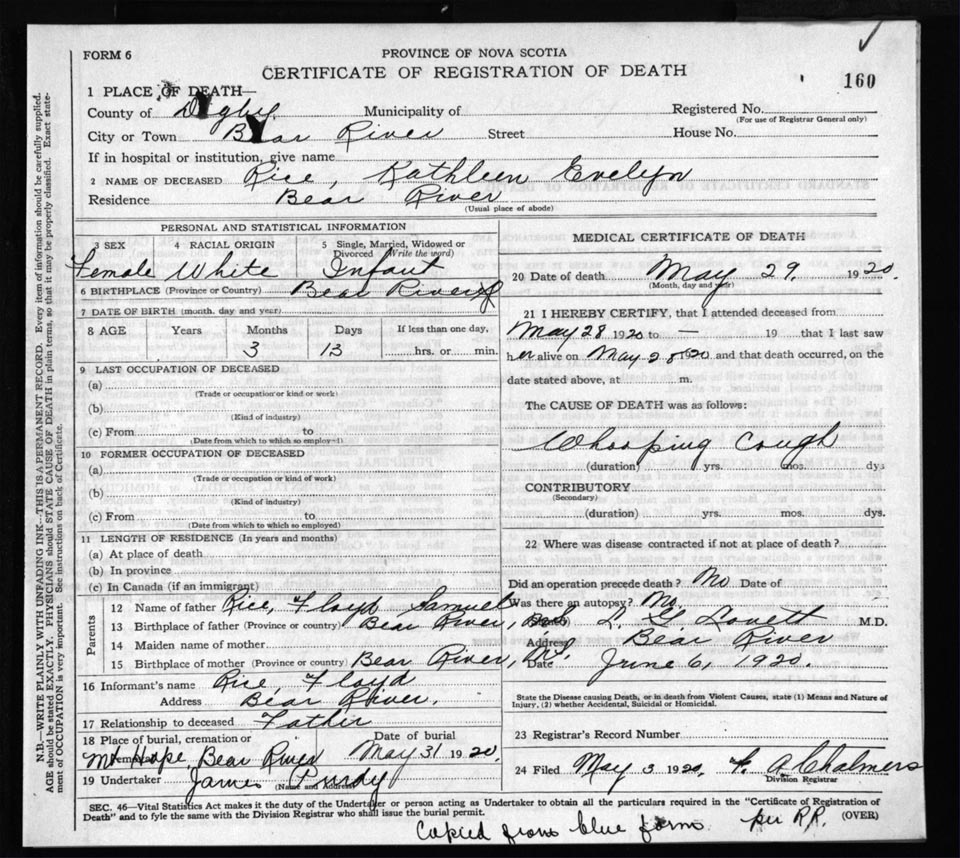 FORM 6
PROVINCE OF NOVA SCOTIA
CERTIFICATE OF REGISTRATION OF DEATH
160
1 PLACE OF DEATH—
County of Digby Municipality of Registered No.
(For use of Registrar General only)
City or Town Bear River Street House No.
If in hospital or institution, give name
2 NAME OF DECEASED Rice, Kathleen Evelyn
Residence Bear River
(Usual place of abode)
PERSONAL AND STATISTICAL INFORMATION
3 SEX 4 RACIAL ORIGIN 5 Single, Married, Widowed or
Divorced (Write the word)
Female White Infant
6 BIRTHPLACE (Province or Country) Bear River
7 DATE OF BIRTH (month, day and year)
8 AGE Years Months Days If less than one day,
3 13 hrs. or min.
9 LAST OCCUPATION OF DECEASED
(a)
(Trade or occupation or kind or work)
(b)
(Kind of industry)
(c) From to
(Date from which to which so employed)
10 FORMER OCCUPATION OF DECEASED
(a)
(Trade or occupation or kind of work)
(b)
(Kind of industry)
(c) From to
(Date from which to which so employed)
11 LENGTH OF RESIDENCE (In years and months)
(a) At place of death
(b) In province
(c) In Canada (if an immigrant)
Parents
12 Name of father Rice, Floyd Samuel
13 Birthplace of father (Province or country) Bear River,
14 Maiden name of mother
15 Birthplace of mother (Province or country) Bear River, N.S.
16 Informant's name Rice, Floyd
Address Bear River,
17 Relationship to deceased Father
18 Place of burial, cremation or Date of burial
Mt Hope, Bear River May 31 1920.
19 Undertaker James Purdy
(Name and Address)
MEDICAL CERTIFICATE OF DEATH
20 Date of death May 29, 1920.
(Month, day and year)
21 I HEREBY CERTIFY, that I attended deceased from
May 28 1920 to — 19 that I last saw
her alive on May 28 1920 and that death occurred, on the
date stated above, at m.
The CAUSE OF DEATH was as follows:
Whooping Cough
(duration) yrs. mos. dys
CONTRIBUTORY
(Secondary)
(duration) yrs. mos. dys.
22 Where was disease contracted if not at place of death?
Did an operation precede death? No Date of
Was there an autopsy? No.
L. G. Lovett M.D.
Address Bear River
Date June 6, 1920.
State the Disease causing Death, or in death from Violent Causes, state (1) Means and Nature of
Injury, (2) whether Accidental, Suicidal or Homicidal.
23 Registrar's Record Number
24 Filed May 3 1920. A Chalmers
Division Registrar
SEC. 46—Vital Statistics Act makes it the duty of the Undertaker or person acting as Undertaker to obtain all the particulars required in the "Certificate of Registration of
Death" and to fyle the same with the Division Registrar who shall issue the burial permit. (OVER)
Copied from blue form per R.R.
N.B.—WRITE PLAINLY WITH UNFADING INK—THIS IS A PERMANENT RECORD. Every item of information should be carefully supplied.
AGE should be stated EXACTLY. PHYSICIANS should STATE CAUSE OF DEATH in plain terms, so that it may be properly classified. Exact state-
ment of OCCUPATION is very important. See instructions on back of Certificate.